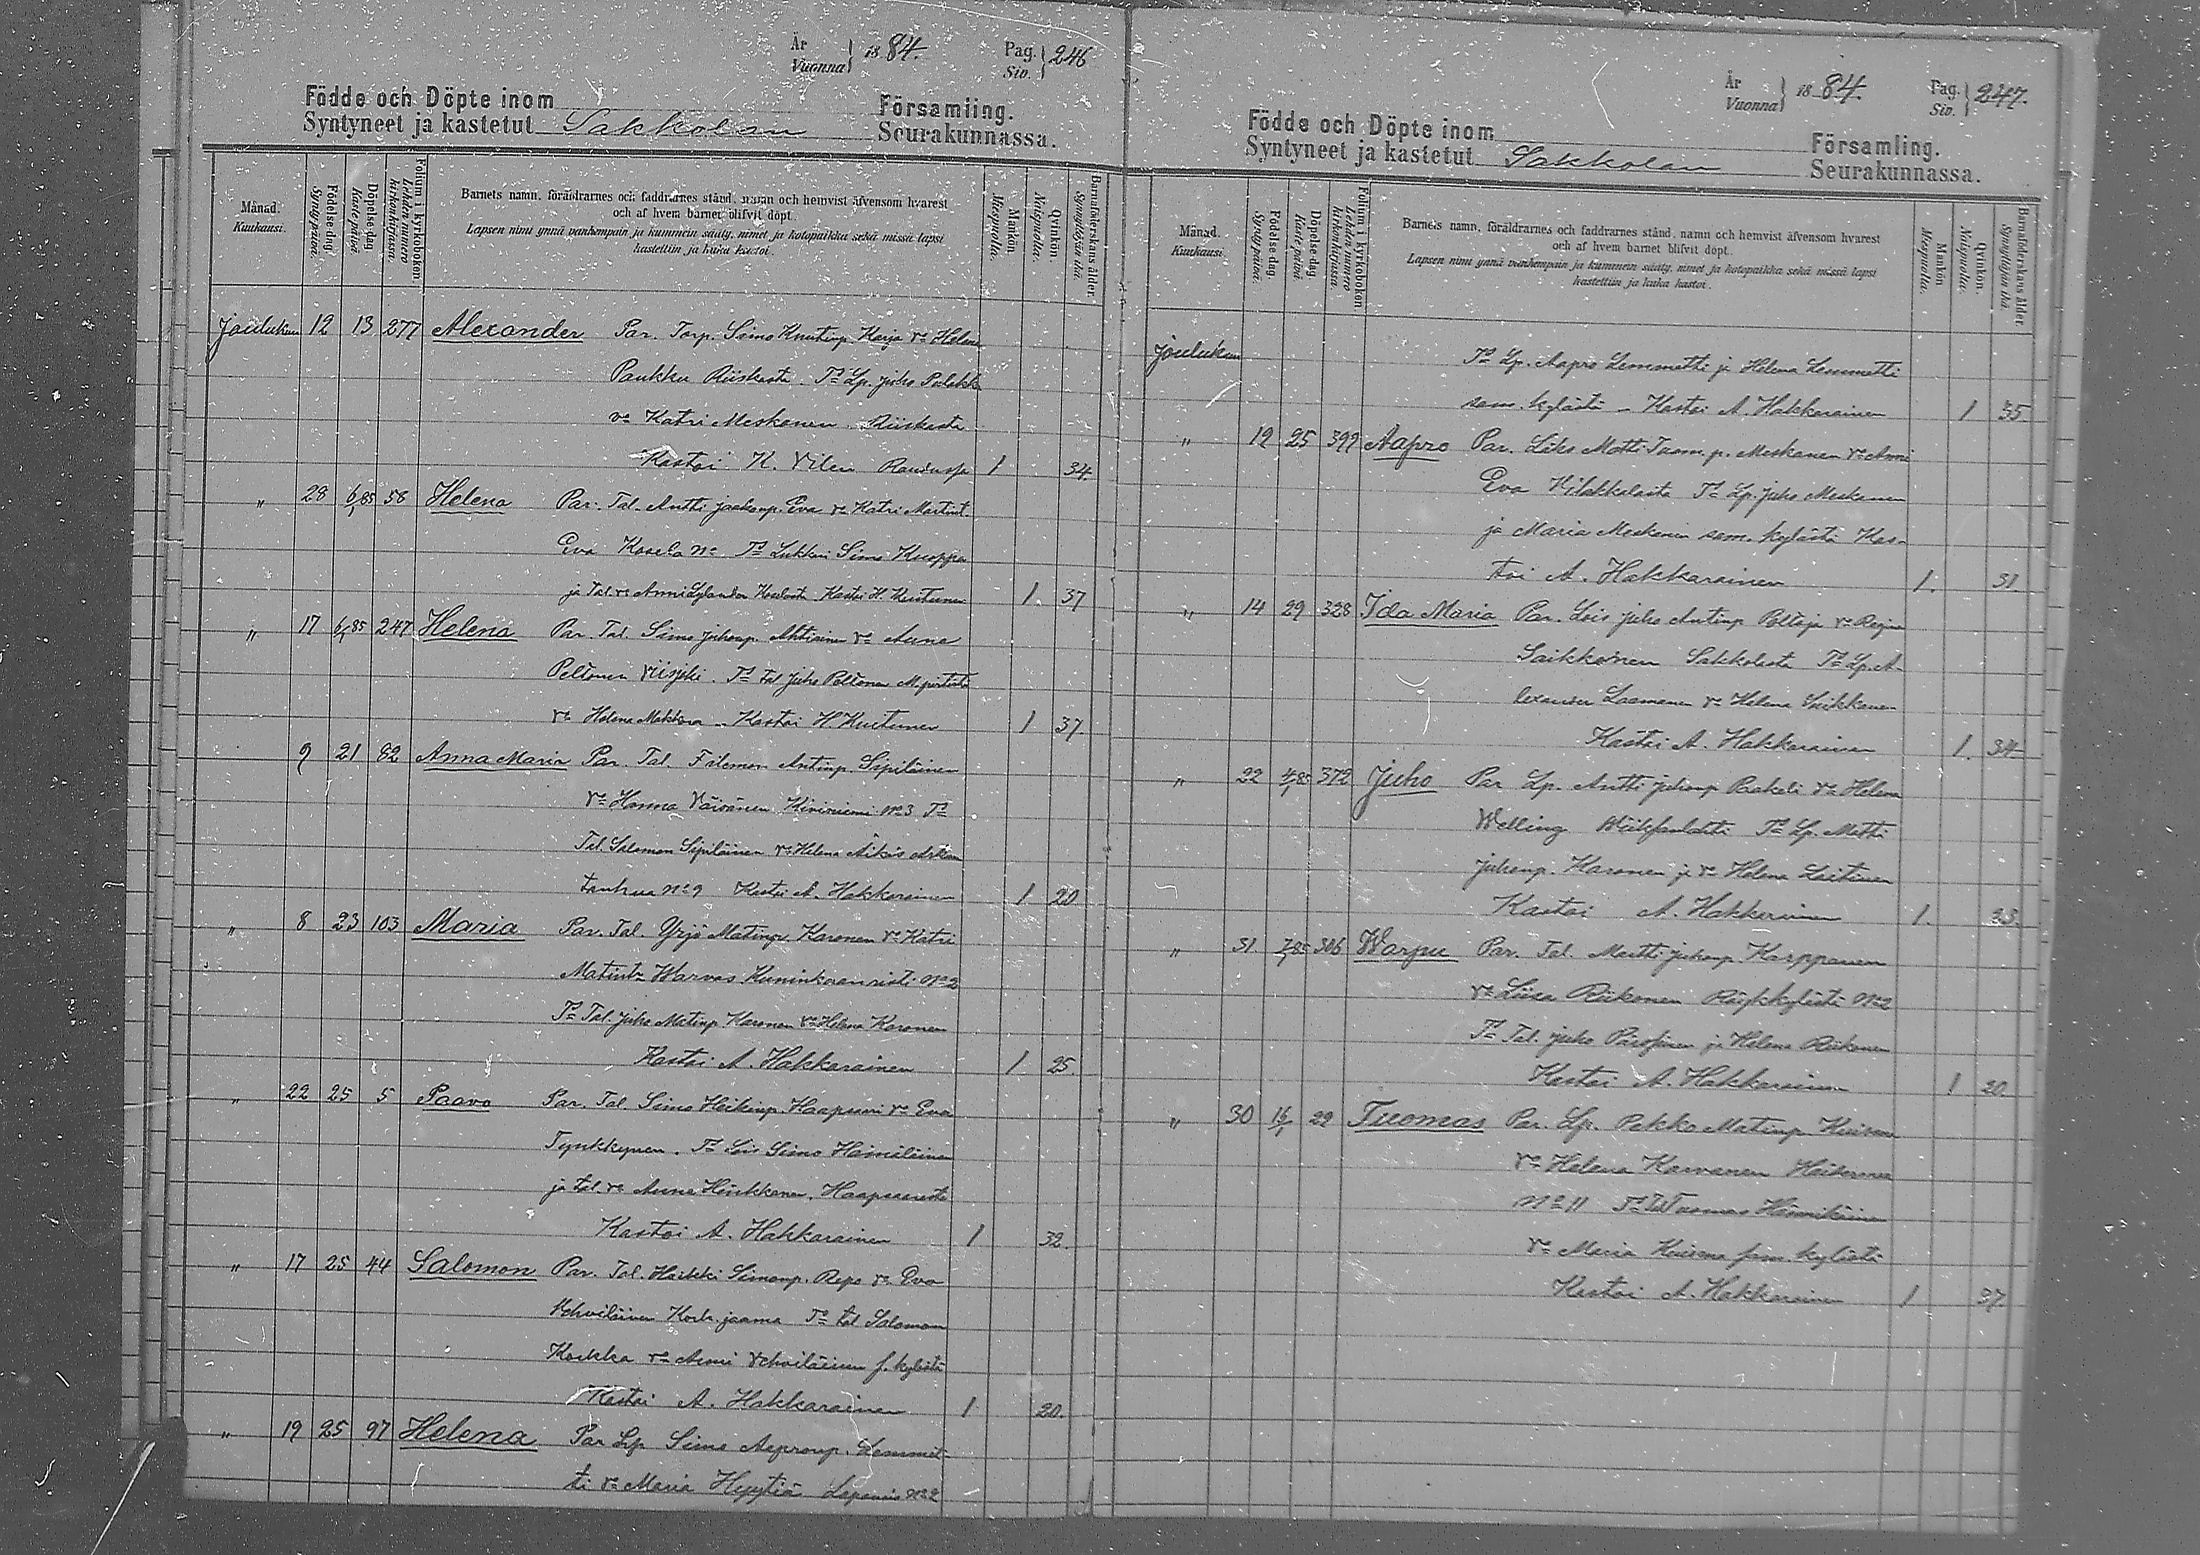 År
Vuonna } 1884.
Pag.
Siv. } 246
Födde och Döpte inom
Syntyneet ja kastetut Sakkolan
Församling.
Seurakunnassa.
Månad.
Kuukausi.
Födelse-dag.
Syntypäivä.
Döpelse-dag.
Kaste-päivä.
Folium i kyrkoboken.
Lehden numero kirkonkirjassa.
Barnets namn, föräldrarnes och faddrarnes stånd, namn och hemvist äfvensom hvarest
och af hvem barnet blifvit döpt.
Lapsen nimi ynnä vanhempain ja kummein sääty, nimet ja kotopaikka sekä missä lapsi
kastettiin ja kuka kastoi.
Mankön
Miespuolia.
Qvinkön.
Naispuolia.
Barnaföderskans ålder.
Synnyttäjän ikä.
Joulukuu 12 13 277 Alexander Par. Torp. Simo Knutinp. Karja v:o Helena
Paukku Riiskasta. T:t Lp. Juho Pulakka
v:o Katri Meskanen Riiskasta
Kastoi K. Vilen Raudussa 1 34
" 28 6/1 85 58 Helena Par. Tal. Antti Jaakonp. Eva v:o Katri Martint.
Eva Kosela N:o T:t Lukkari Simo Kuoppa
ja Tal. v:o Anni Kaselasta Kastoi H. Kuutunen 1. 37
" 17 6/1 85 247 Helena Par. Tal. Simo Juhonp. Ahtiainen v:o Aune
Peltonen T:t Tal Juho Peltonen
v:o Helena Kastoi H Kuutunen 1 37.
9 21 82 Anna Maria Par. Tal. Filemon Antinp. Sipiläinen
v:o Hanna Väivänen Kiviniemi N:o 3 T:t
Tal. Salomon Sipiläinen v:o Helena Äikäs
tanhua N:o 9 Kastoi A. Hakkarainen 1 20
" 8 23 103 Maria Par. Tal Yrjö Matinp. Karonen v:o Katri
Matint. Warvas Kuninkaanristi N:o 2
T:t Tal. Juho Matinp Karonen v:o Helena Karonen
Kastoi A. Hakkarainen 1 25.
" 22 25 5 Paavo Par. Tal. Simo Heikinp. Haapsaari v:o Eva
Tynkkynen. T:t Lois Simo Hämäläinen
ja tal. v:o Anna Heikkonen, Haapsaaresta
Kastoi A. Hakkarainen 1 32.
" 17 25 44 Salomon Par. Tal. Heikki Simonp. Repo v:o Eva
Vehviläinen T:t tal Salomon
Koskka v:o Anni Vehviläinen s. kylästä
Kastoi A. Hakkarainen 1 20.
" 19 25 97 Helena Par Lp Simo Aapronp. Lemmet-
ti v:o Maria Hyytiä Lapanais N:o 2
År
Vuonna } 1884.
Pag.
Siv. } 247.
Födde och Döpte inom
Syntyneet ja kastetut Sakkolan
Församling.
Seurakunnassa.
Månad.
Kuukausi.
Födelse-dag.
Syntypäivä.
Döpelse-dag.
Kaste-päivä.
Folium i kyrkoboken.
Lehden numero kirkonkirjassa.
Barnets namn, föräldrarnes och faddrarnes stånd, namn och hemvist äfvensom hvarest
och af hvem barnet blifvit döpt.
Lapsen nimi ynnä vanhempain ja kummein sääty, nimet ja kotopaikka sekä missä lapsi
kastettiin ja kuka kastoi.
Mankön
Miespuolia.
Qvinkön.
Naispuolia.
Barnaföderskans ålder.
Synnyttäjän ikä.
Jouluk. T:t Lp. Aapro Lemmetti ja Helena Lemmetti
sam. kylästä – Kastoi A. Hakkarainen 1 35.
" 19 25 399 Aapro Par. Matti Tuom.p. Meskanen v:o Anni
Eva Vilakkalasta T:t Lp. Juho Meskanen
ja Maria Meskanen sam. kylästä Kas-
toi A. Hakkarainen 1. 31
" 14 29 328 Ida Maria Par. Lois Juho Antinp Peltoja v:o Regina
Saikkonen Sakkolasta T:t Lp. A-
lexander Laamanen v:o Helena Saikkonen
Kastoi A. Hakkarainen 1. 34
" 22 4/1 85 372 Juho Par Lp. Antti Juhonp Paakeli v:o Helena
Welling T:t Lp. Matti
Juhonp. Karonen ja v:o Helena Laitinen
Kastoi A. Hakkarainen 1. 23.
" 31. 7/1 85 306 Warpu Par. Tal. Martti Juhonp. Karppanen
v:o Liisa Riikonen N:o 2
T:t Tal. Juho ja Helena Riikonen
Kastoi A. Hakkarainen 1 20.
" 30 16/1 22 Tuomas Par. Lp. Pekko Matinp. Kuisma
v:o Helena Karvanen Haitermaa
N:o 11 T:t Tal Tuomas Hännikäinen
v:o Maria Kuisma sam. kylästä
Kastoi A. Hakkarainen 1 37.